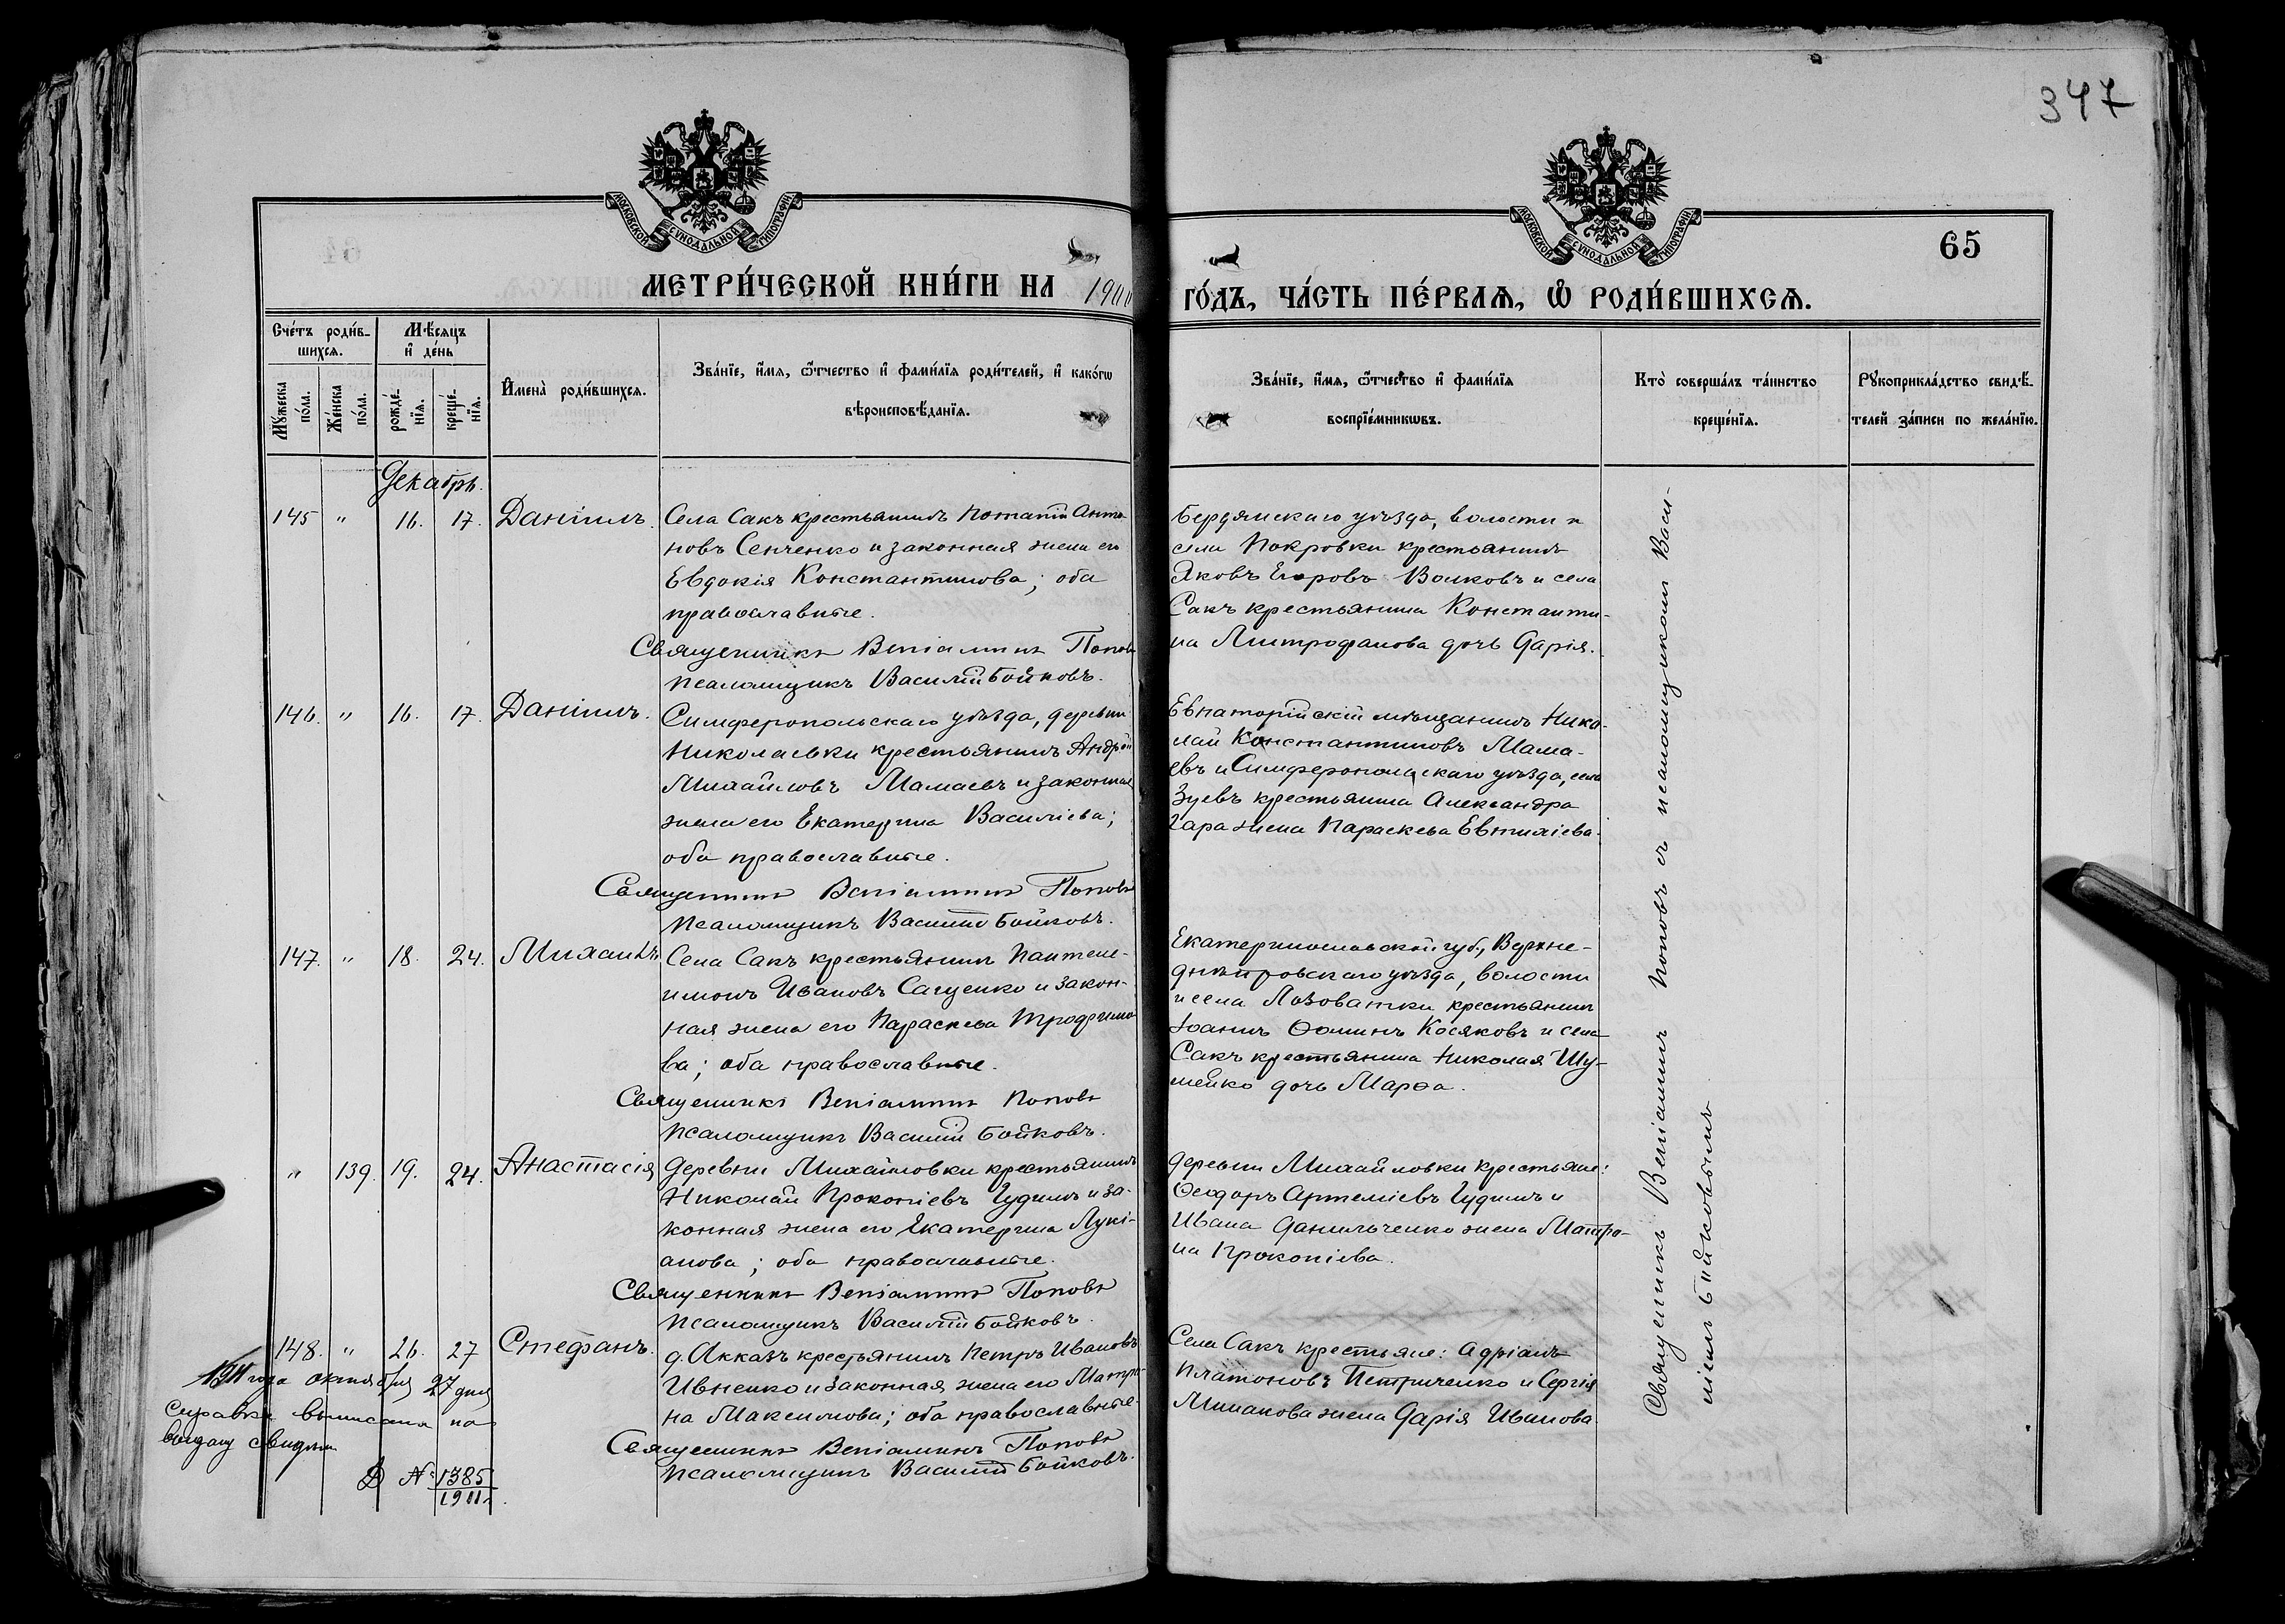 347
МОСКОВСКОЙ СѴНОДАЛЬНОЙ ТИПОГРАФІИ
МОСКОВСКОЙ СѴНОДАЛЬНОЙ ТИПОГРАФІИ
65
МЕТРИ́ЧЕСКОЙ КНИ́ГИ НА 1900 ГО́ДЪ, ЧА́СТЬ ПЕ́РВАѦ, Ѡ҆ РОДИ́ВШИХСѦ.
Сче́тъ роди́в-
шихсѧ.
Мꙋ́жеска по́ла.
Же́нска по́ла.
Мѣ́сѧцъ
и҆ де́нь
рожде́-
нїѧ.
креще́-
нїѧ.
И҆мена̀ роди́вшихсѧ.
Зва́нїе, и҆́мѧ, ѻ҆́тчество и҆ фами́лїѧ роди́телей, и҆ како́гѡ
вѣроисповѣ́данїѧ.
Зва́нїе, и҆́мѧ, ѻ҆́тчество и҆ фами́лїѧ
воспрїе́мникѡвъ.
Кто̀ соверша́лъ та́инство
креще́нїѧ.
Рꙋкоприкла́дство свидѣ́-
телей за́писи по жела́нїю.
Декабрь.
145 " 16. 17. Даніилъ.
Села Сакъ крестьянинъ Потапій Анто-
новъ Сенченко и законная жена его
Евдокія Константинова; оба
православные.
Священникъ Веніаминъ Поповъ
Псаломщикъ Василій Бойковъ.
Бердянскаго уѣзда, волости и
села Покровки крестьянинъ
Яковъ Егоровъ Волковъ и села
Сакъ крестьянина Константи-
на Митрофанова дочь Дарія.
146. " 16. 17. Даніилъ.
Симферопольскаго уѣзда, деревни
Николаевки крестьянинъ Андрей
Михайловъ Мамаевъ и законная
жена его Екатерина Василіева;
оба православные.
Священникъ Веніаминъ Поповъ
Псаломщикъ Василій Бойковъ.
Евпаторійскій мѣщанинъ Нико-
лай Константиновъ Мама-
евъ и Симферопольскаго уѣзда, села
Зуевъ крестьянина Александра
жена Параскева
147. " 18. 24. Михаилъ
Села Сакъ крестьянинъ Пантеле-
имонъ Ивановъ Саченко и закон-
ная жена его Параскева Трофимо-
ва; оба православные.
Священникъ Веніаминъ Поповъ
Псаломщикъ Василій Бойковъ.
Екатеринославской губ., Верхне-
днѣпровскаго уѣзда, волости
и села Лозоватки крестьянинъ
Іоаннъ Ѳоминъ Косяковъ и села
Сакъ крестьянина Николая Шу-
мейко дочь Марѳа.
" 139. 19. 24. Анастасія
Деревни Михайловки крестьянинъ
Николай Прокопіевъ Чудинъ и за-
конная жена его Екатерина Лукі-
анова; оба православные.
Священникъ Веніаминъ Поповъ
Псаломщикъ Василій Бойковъ.
деревни Михайловки крестьяне:
Ѳеодоръ Артеміевъ Чудинъ и
Ивана Данильченко жена Матро-
на Прокопіева.
148. " 26. 27 Стефанъ.
д. Акказъ крестьянинъ Петръ Ивановъ
Ивненко и законная жена его Матро-
на Максимова; оба православные.
Священникъ Веніаминъ Поповъ
Псаломщикъ Василій Бойковъ.
Села Сакъ крестьяне: Адріанъ
Платоновъ Петриченко и Сергія
Минакова жена Дарія Иванова.
1911 года октября 27 дня
Справка выписана на
выдачу свидѣт
Д № 1385
1911.
Священникъ Веніаминъ Поповъ съ псаломщикомъ Васи-
ліемъ Бойковымъ